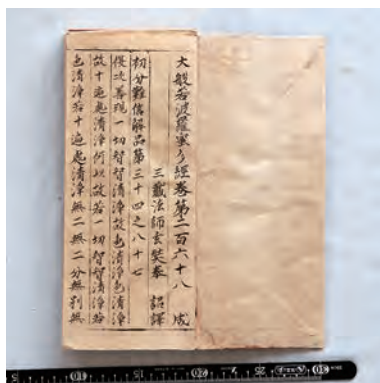 大般若波羅蜜多經卷第二百六十八　咸
三藏法師玄奘奉　詔譯
初分難信解品第三十四之八十七
復次善現一切智智清淨故色清淨色清淨
故十遍處清淨何以故若一切智智清淨若
色清淨若十遍處清淨無二無二分無別無